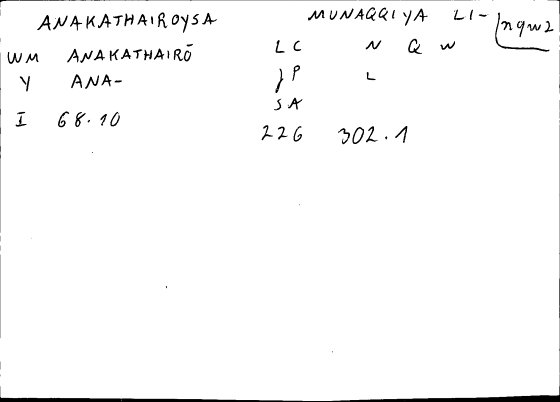 ANAKATHAIROYSA MUNAQQIYA LI- nqw2
WM ANAKATHAIRŌ LC N Q W
Y ANA- JP L
SA
I 68.10 226 302.1